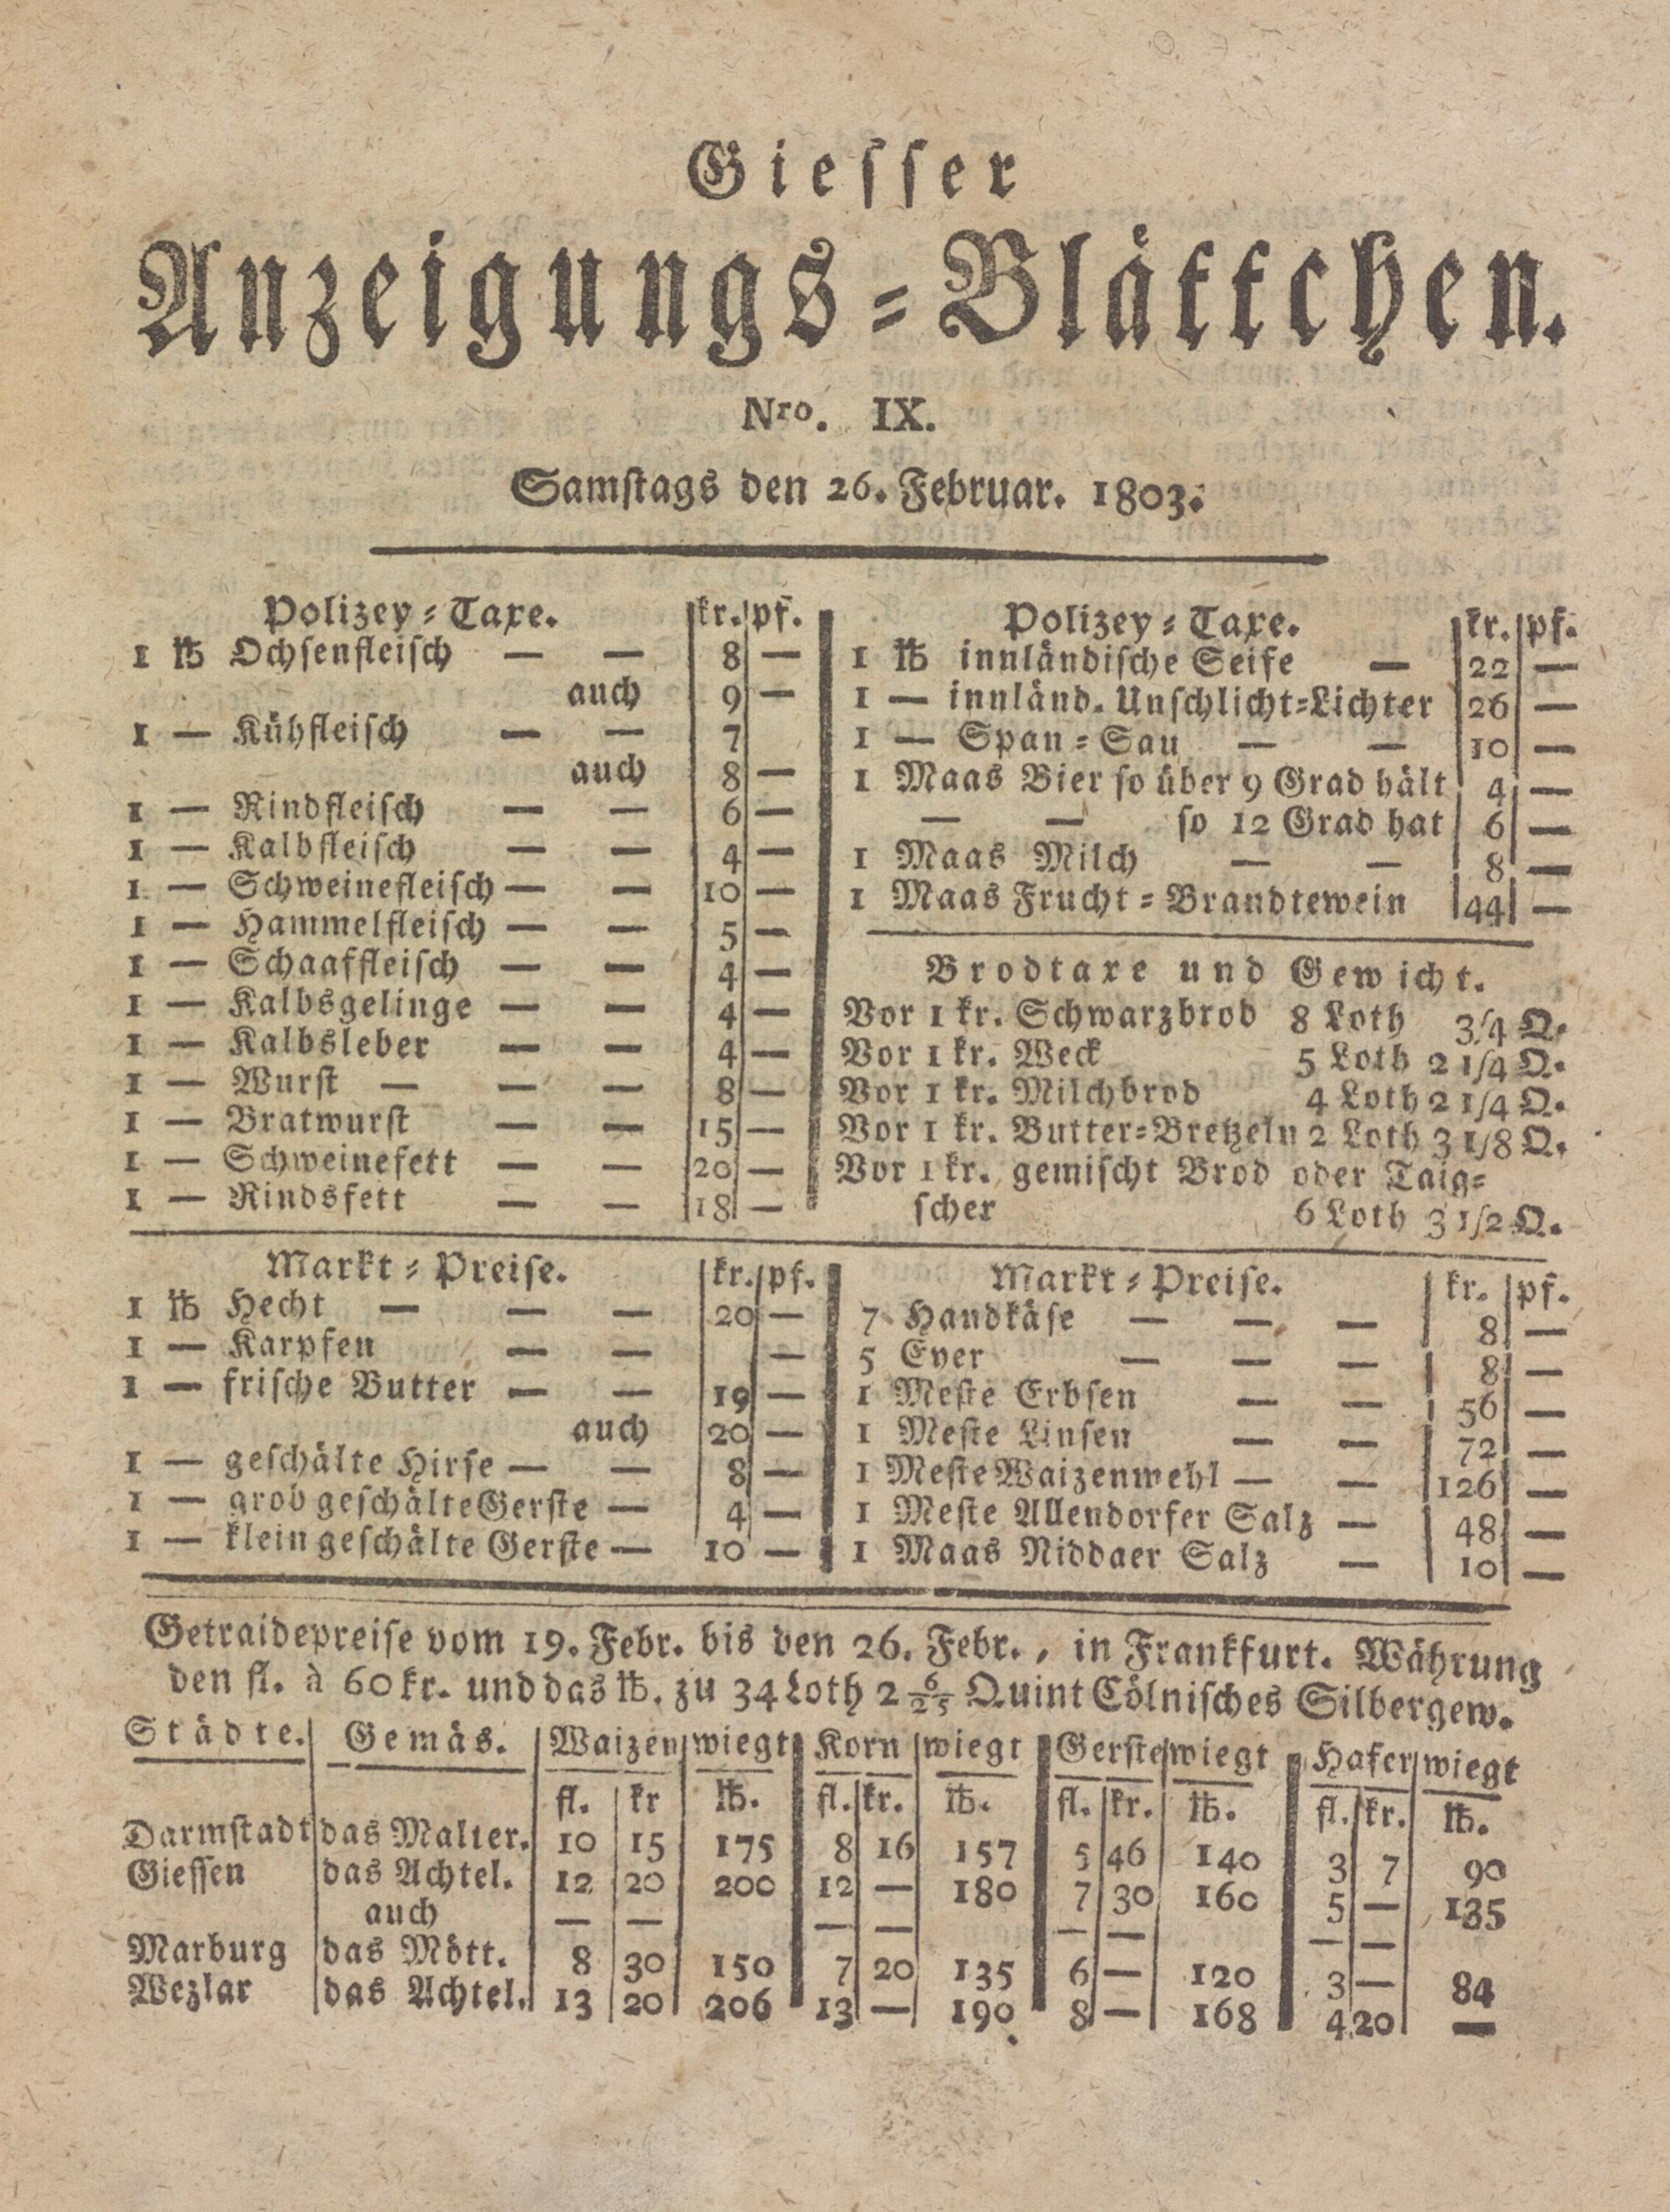 Giesser
Anzeigungs-Blättchen.
Nro. IX.
Samstags den 26. Februar. 1803.
Polizey-Taxe. kr. pf.
1 ℔ Ochsenfleisch — — 8 —
auch 9 —
1 — Kühfleisch — — 7
auch 8 —
1 — Rindfleisch — — 6 —
1 — Kalbfleisch — — 4 —
1 — Schweinefleisch — — 10 —
1 — Hammelfleisch — — 5 —
1 — Schaaffleisch — — 4 —
1 — Kalbsgelinge — — 4 —
1 — Kalbsleber — — 4 —
1 — Wurst — — — 8 —
1 — Bratwurst — — 15 —
1 — Schweinefett — — 20 —
1 — Rindsfett — — 18 —
Polizey-Taxe. kr. pf.
1 ℔ innländische Seife — 22 —
1 — innländ. Unschlicht-Lichter 26 —
1 — Span-Sau — — 10 —
1 Maas Bier so über 9 Grad hält 4 —
— — so 12 Grad hat 6 —
1 Maas Milch — — 8 —
1 Maas Frucht-Brandtewein 44 —
Brodtaxe und Gewicht.
Vor 1 kr. Schwarzbrod 8 Loth 3/4 Q.
Vor 1 kr. Weck 5 Loth 2 1/4 Q.
Vor 1 kr. Milchbrod 4 Loth 2 1/4 Q.
Vor 1 kr. Butter-Bretzeln 2 Loth 3 1/8 Q.
Vor 1 kr. gemischt Brod oder Taig-
scher 6 Loth 3 1/2 Q.
Markt-Preise. kr. pf.
1 ℔ Hecht — — — 20 —
1 — Karpfen — — —
1 — frische Butter — — 19 —
auch 20 —
1 — geschälte Hirse — — 8 —
1 — grob geschälte Gerste — 4 —
1 — klein geschälte Gerste — 10 —
Markt-Preise. kr. pf.
7 Handkäse — — — 8 —
5 Eyer — — — 8 —
1 Meste Erbsen — — 56 —
1 Meste Linsen — — 72 —
1 Meste Waizenmehl — — 126 —
1 Meste Allendorfer Salz — 48 —
1 Maas Niddaer Salz — 10 —
Getraidepreise vom 19. Febr. bis den 26. Febr., in Frankfurt. Währung
den fl. à 60 kr. und das ℔. zu 34 Loth 2 6/25 Quint Cölnisches Silbergew.
Städte. Gemäs. Waizen wiegt Korn wiegt Gerste wiegt Hafer wiegt
fl. kr ℔. fl. kr. ℔. fl. kr. ℔. fl. kr. ℔.
Darmstadt das Malter. 10 15 175 8 16 157 5 46 140 3 7 90
Giessen das Achtel. 12 20 200 12 — 180 7 30 160 5 — 135
auch — — — — — — — —
Marburg das Mött. 8 30 150 7 20 135 6 — 120 3 — 84
Wezlar das Achtel. 13 20 206 13 — 190 8 — 168 4 20 —